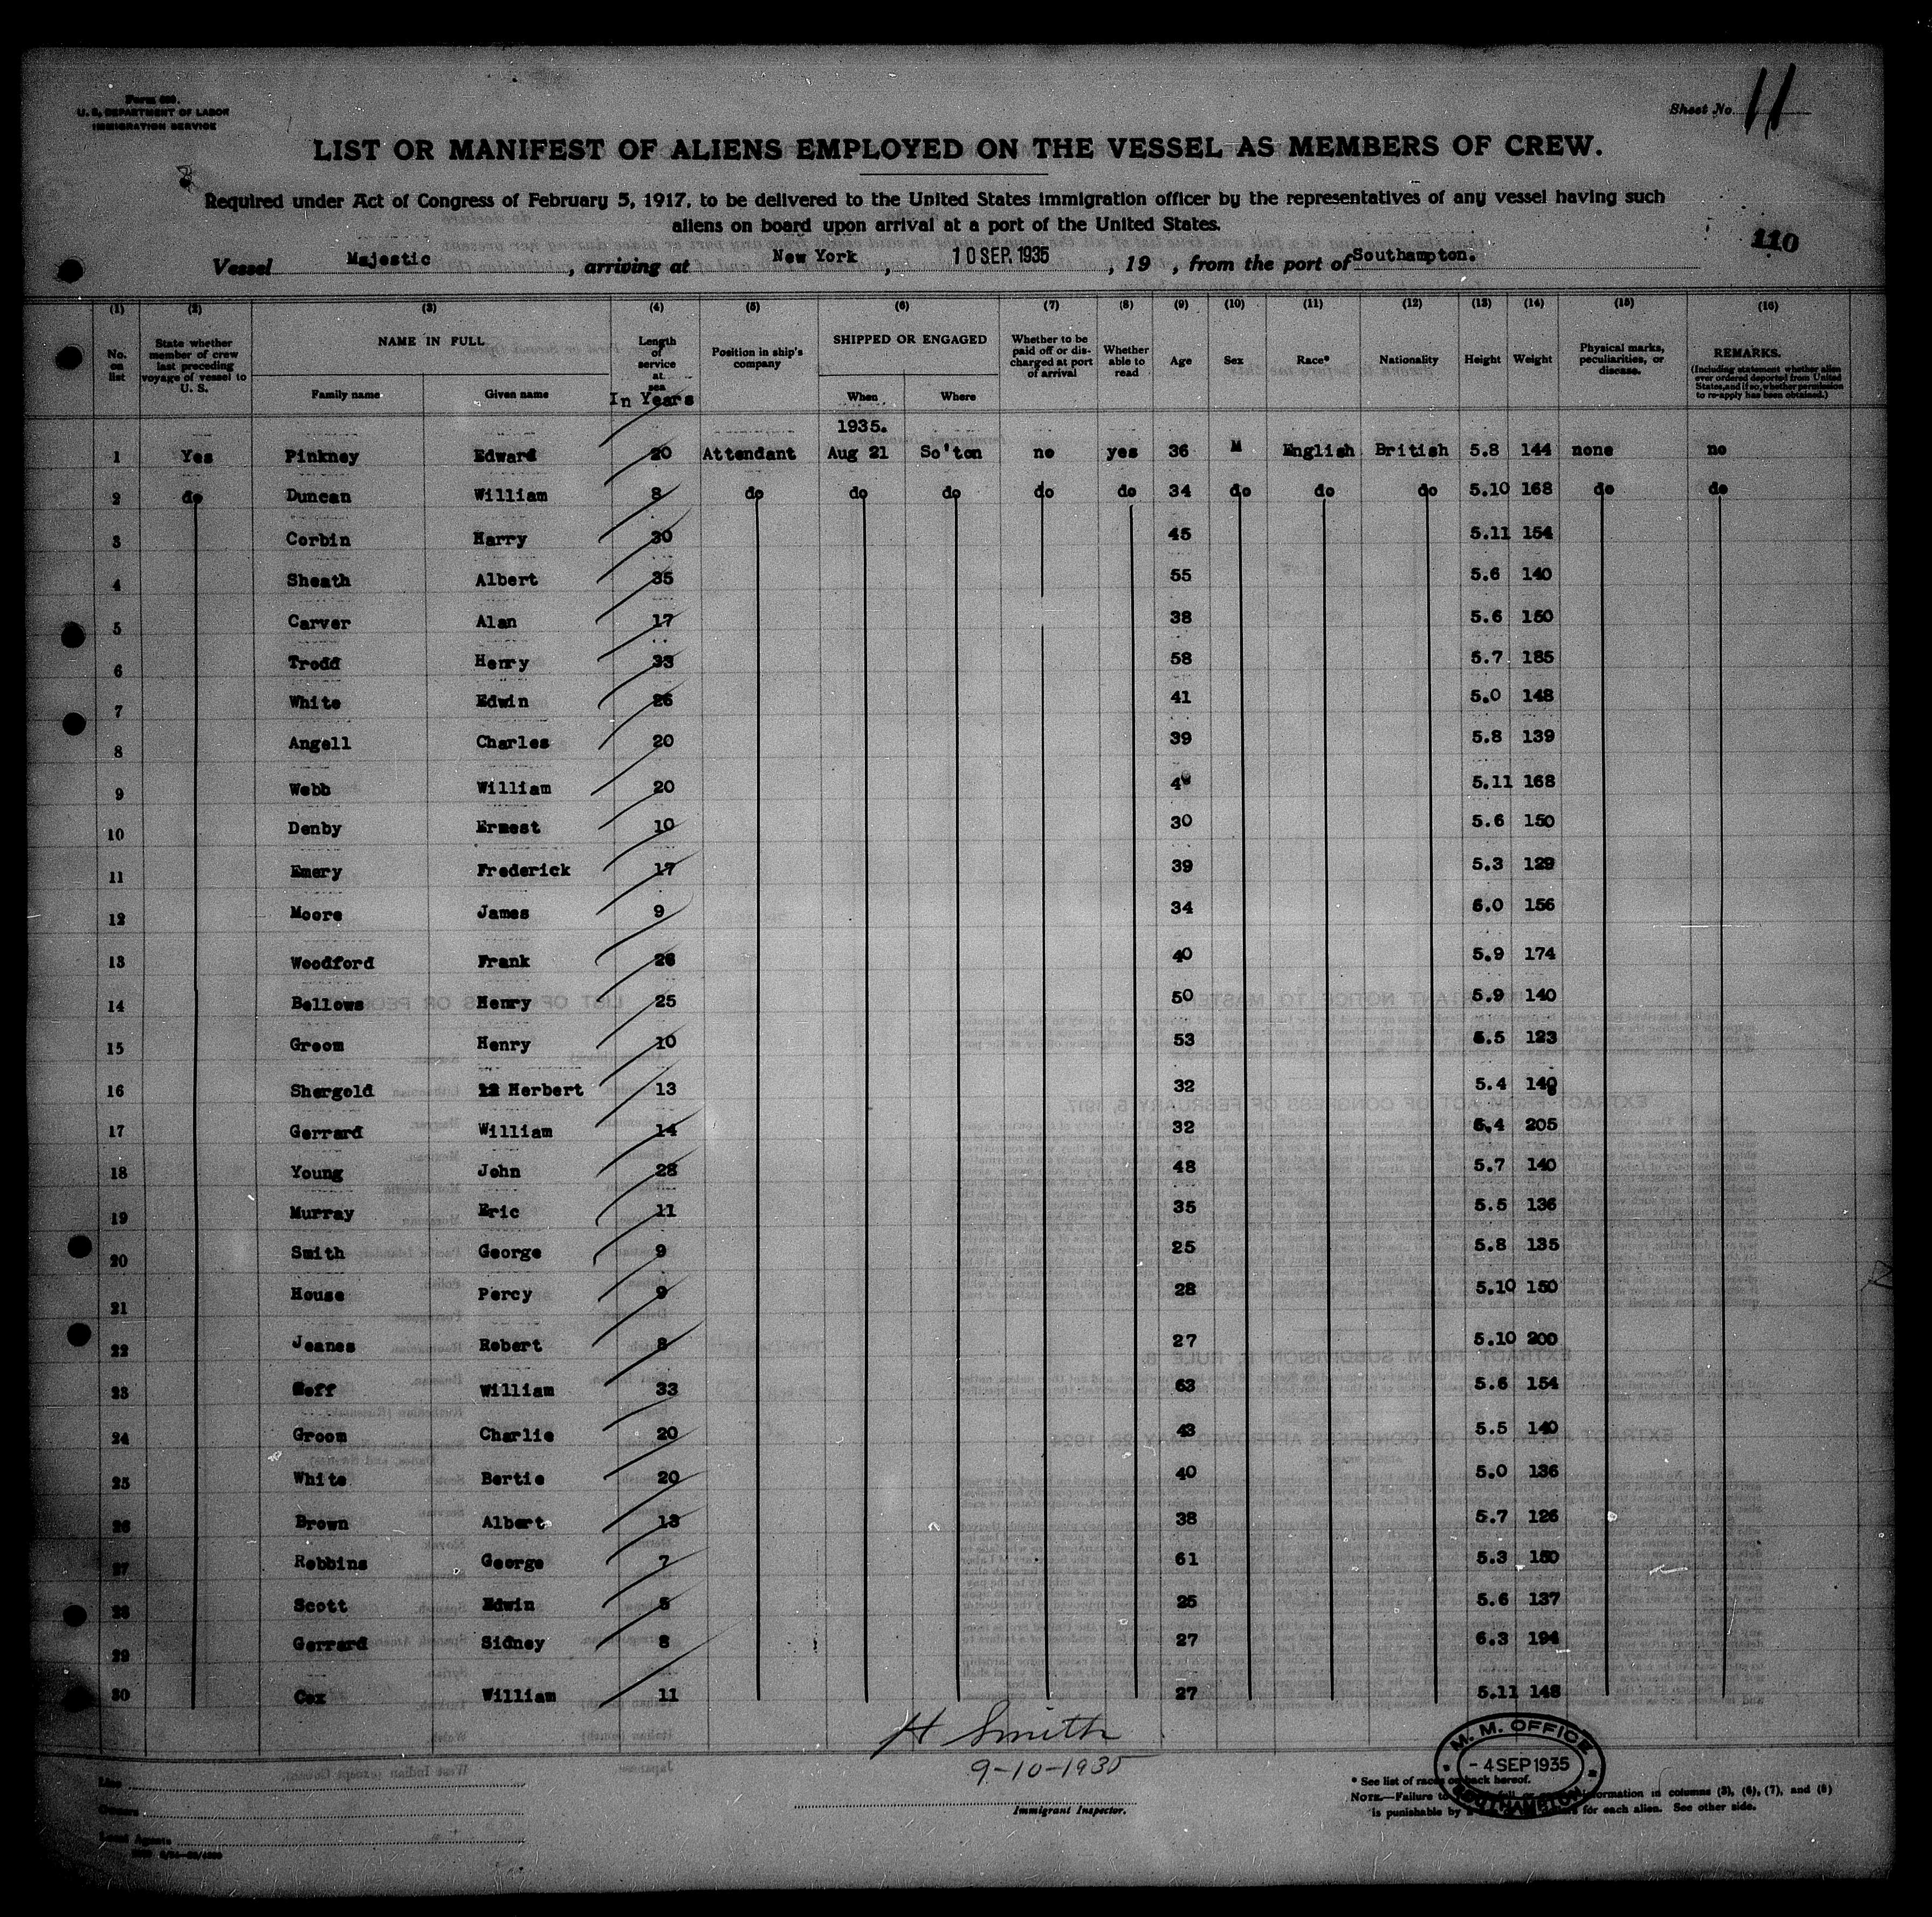 Form 680.
U. S. DEPARTMENT OF LABOR
IMMIGRATION SERVICE
Sheet No. 11
LIST OR MANIFEST OF ALIENS EMPLOYED ON THE VESSEL AS MEMBERS OF CREW.
Required under Act of Congress of February 5, 1917, to be delivered to the United States immigration officer by the representatives of any vessel having such
aliens on board upon arrival at a port of the United States.
110
Vessel Majestic, arriving at New York, 10 SEP. 1935, 19 , from the port of Southampton.
(1) (2) (3) (4) (5) (6) (7) (8) (9) (10) (11) (12) (13) (14) (15) (16)
No. on list State whether member of crew last preceding voyage of vessel to U. S. NAME IN FULL Family name Given name Length of service at sea In Years Position in ship's company SHIPPED OR ENGAGED When Where Whether to be paid off or discharged at port of arrival Whether able to read Age Sex Race* Nationality Height Weight Physical marks, peculiarities, or disease. REMARKS. (Including statement whether alien ever ordered deported from United States, and if so, whether permission to re-apply has been obtained.)
1935.
1 Yes Pinkney Edward 20 Attendant Aug 21 So'ton no yes 36 M English British 5.8 144 none no
2 do Duncan William 8 do do do do do 34 do do do 5.10 168 do do
3 Corbin Harry 30 45 5.11 154
4 Sheath Albert 35 55 5.6 140
5 Carver Alan 17 38 5.6 150
6 Trodd Henry 33 58 5.7 185
7 White Edwin 26 41 5.0 148
8 Angell Charles 20 39 5.8 139
9 Webb William 20 5.11 168
10 Denby Ernest 10 30 5.6 150
11 Emery Frederick 17 39 5.3 129
12 Moore James 9 34 6.0 156
13 Woodford Frank 26 40 5.9 174
14 Bellows Henry 25 50 5.9 140
15 Groom Henry 10 53 5.5 123
16 Shergold Herbert 13 32 5.4 140
17 Gerrard William 14 32 6.4 205
18 Young John 28 48 5.7 140
19 Murray Eric 11 35 5.5 136
20 Smith George 9 25 5.8 135
21 House Percy 9 28 5.10 150
22 Jeanes Robert 8 27 5.10 200
23 William 33 63 5.6 154
24 Groom Charlie 20 43 5.5 140
25 White Bertie 20 40 5.0 136
26 Brown Albert 13 38 5.7 126
27 Robbins George 7 61 5.3 150
28 Scott Edwin 5 25 5.6 137
29 Gerrard Sidney 8 27 6.3 194
30 Cox William 11 27 5.11 148
H Smith
9-10-1935
Immigrant Inspector.
Line
Owners
Local Agents
M. M. OFFICE
- 4 SEP 1935
SOUTHAMPTON
* See list of races on back hereof.
NOTE.—Failure to information in columns (3), (6), (7), and (8)
is punishable by for each alien. See other side.